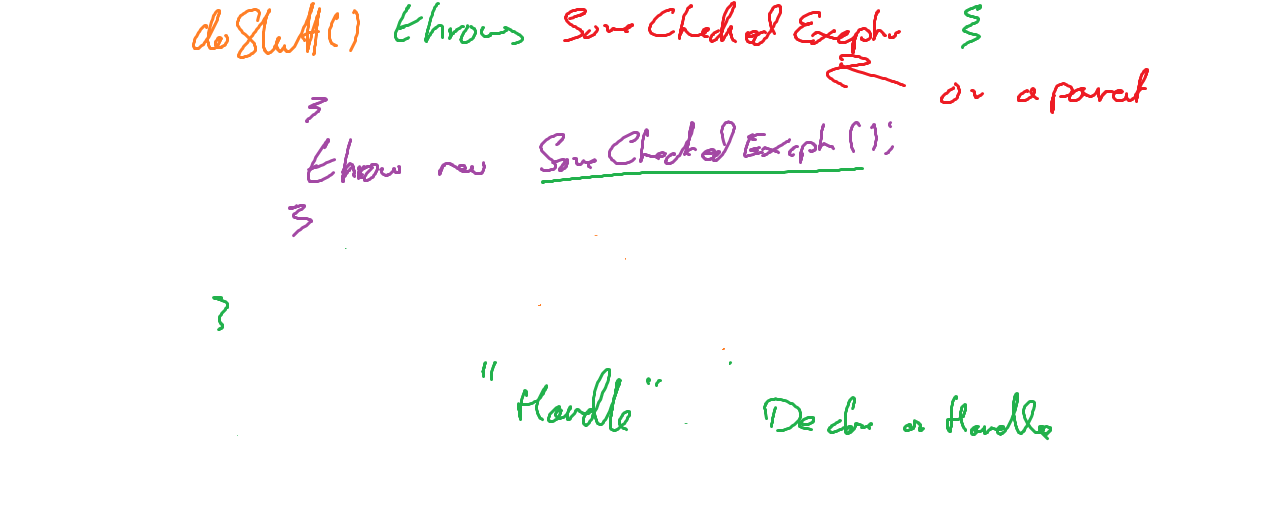 doStuff() throws SomeCheckedException {
or a parent
}
throw new SomeCheckedException();
}
}
"Handle" Declare or Handle